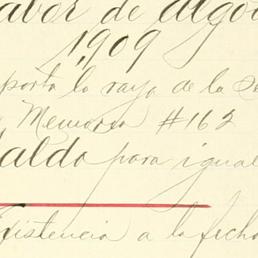 labor de algod
1,909
porta la raya de la Se
Memoria #162
Saldo para igual
Existencia a la fecha